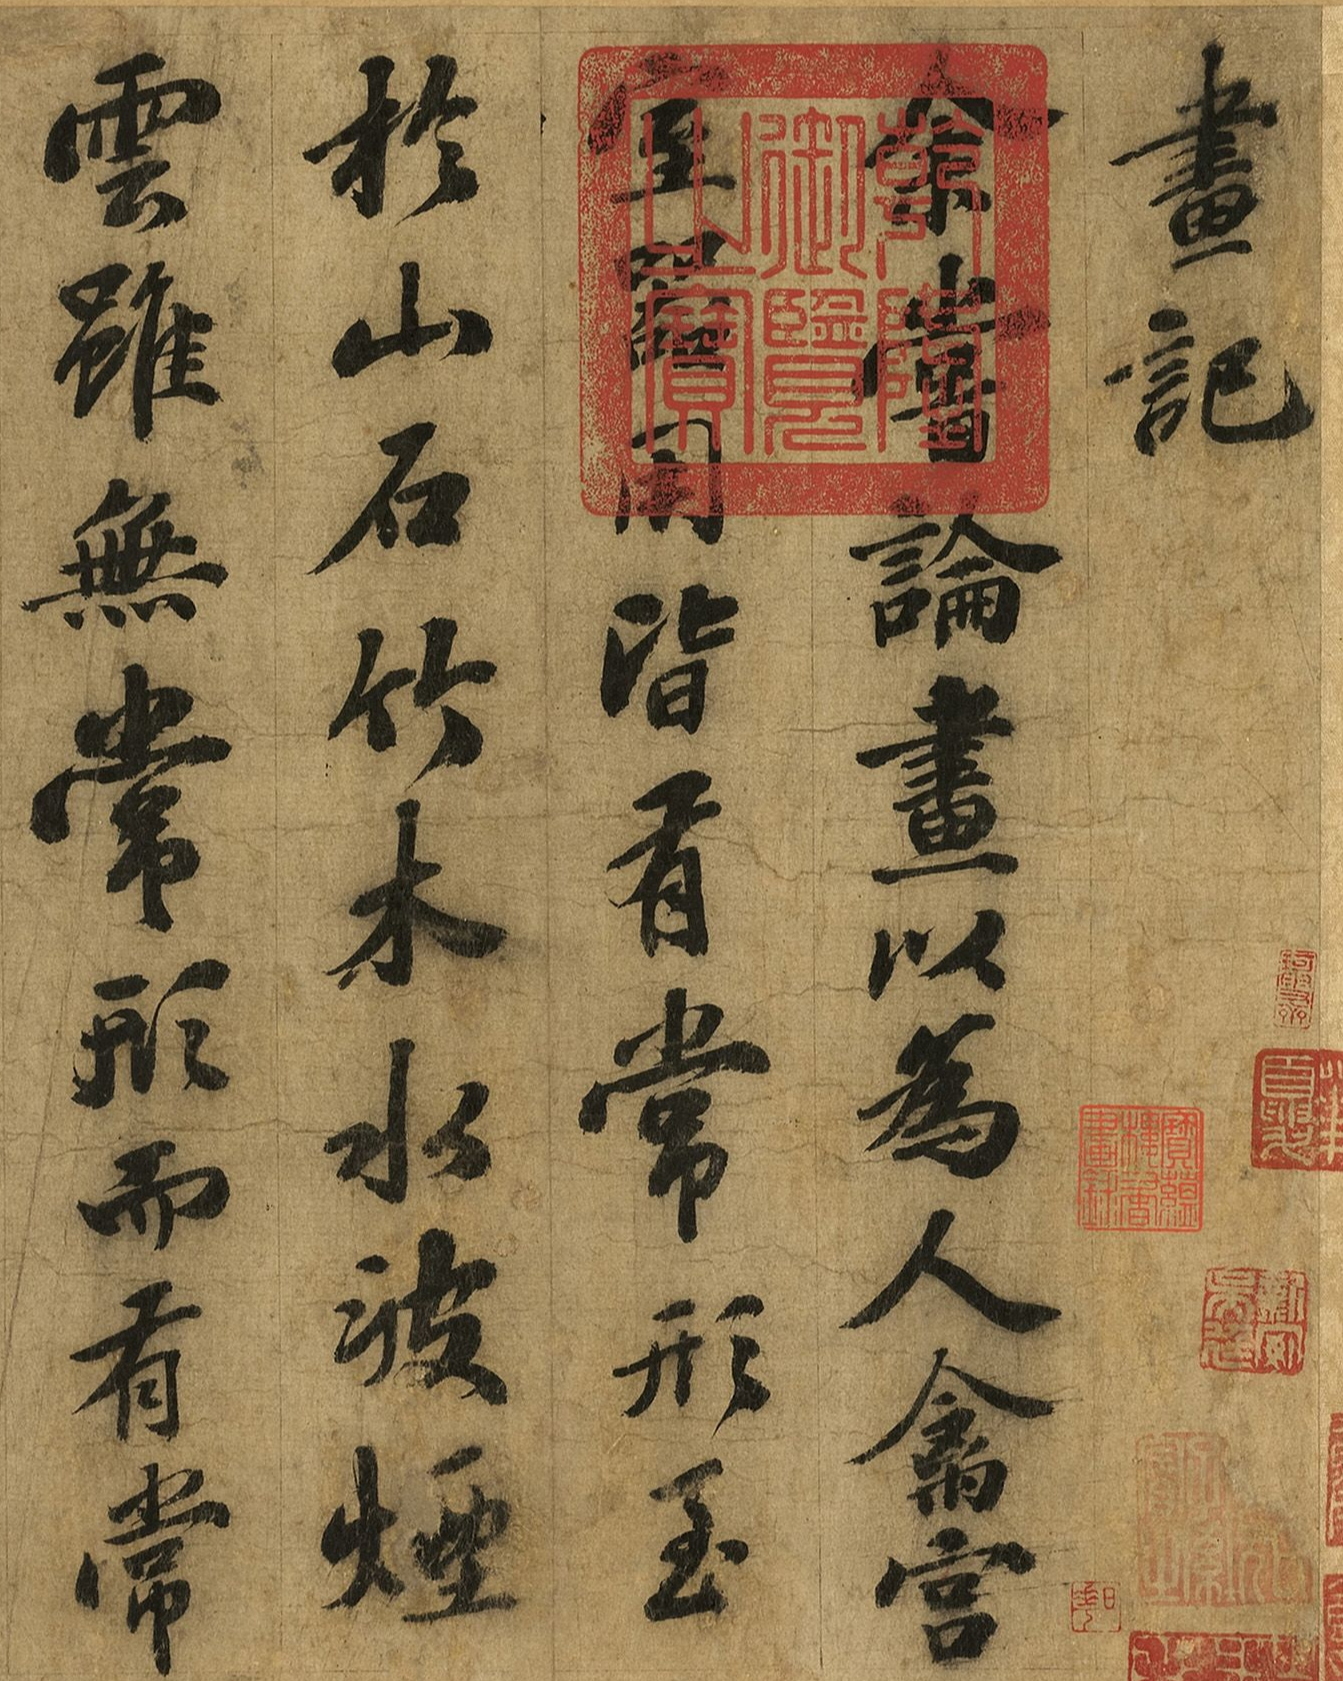 畫記
余嘗論畫以為人禽宮
室器用皆有常形至
於山石竹木水波煙
雲雖無常形而有常
乾隆
御覽
之寶
寶蘊
樓書
畫錄